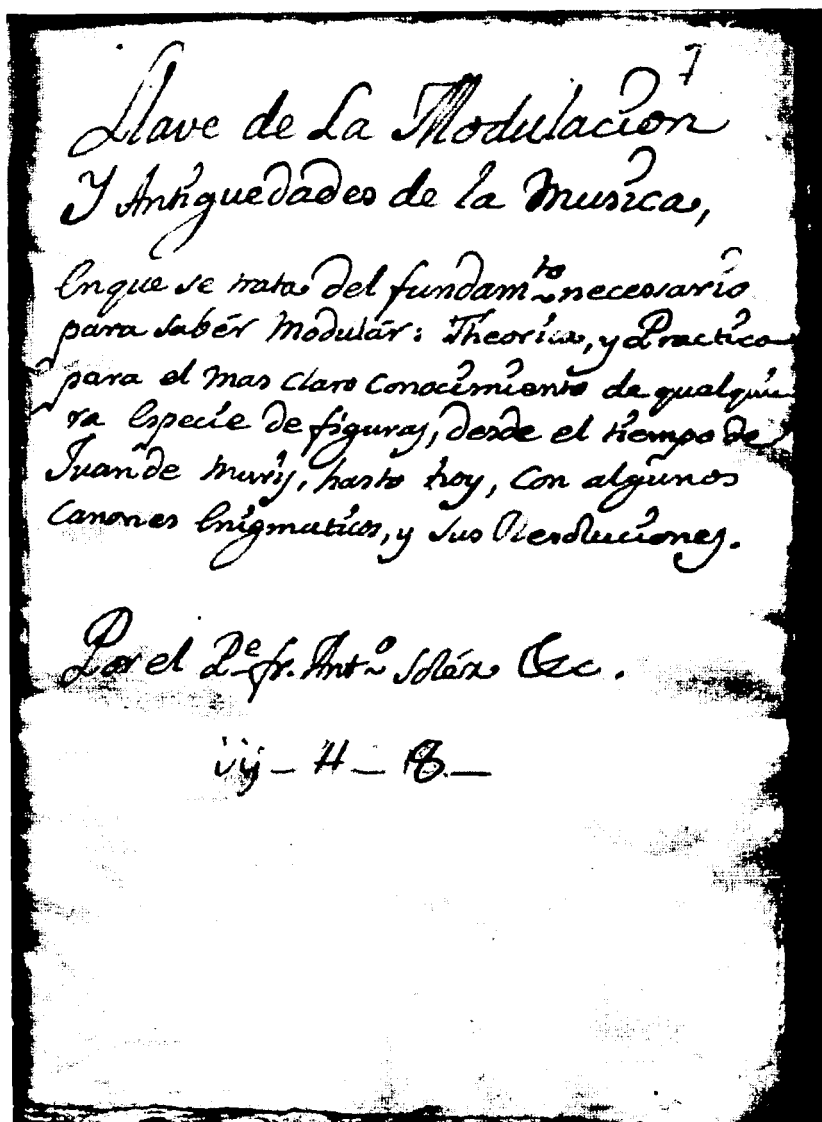 7
Llave de La Modulacion
Y Antiguedades de la Musica,
Enque se trata del fundam.to necessario
para sabér Modulár: Theorica, y Practica
para el mas Claro Conocimiento de qualquie
ra Especie de figuras, desde el tiempo de
Juan de Muris, hasta hoy, Con algunos
Canones Enigmaticos, y sus Resoluciones.
Por el P.e fr. Ant.o Solér &c.
vij – H –